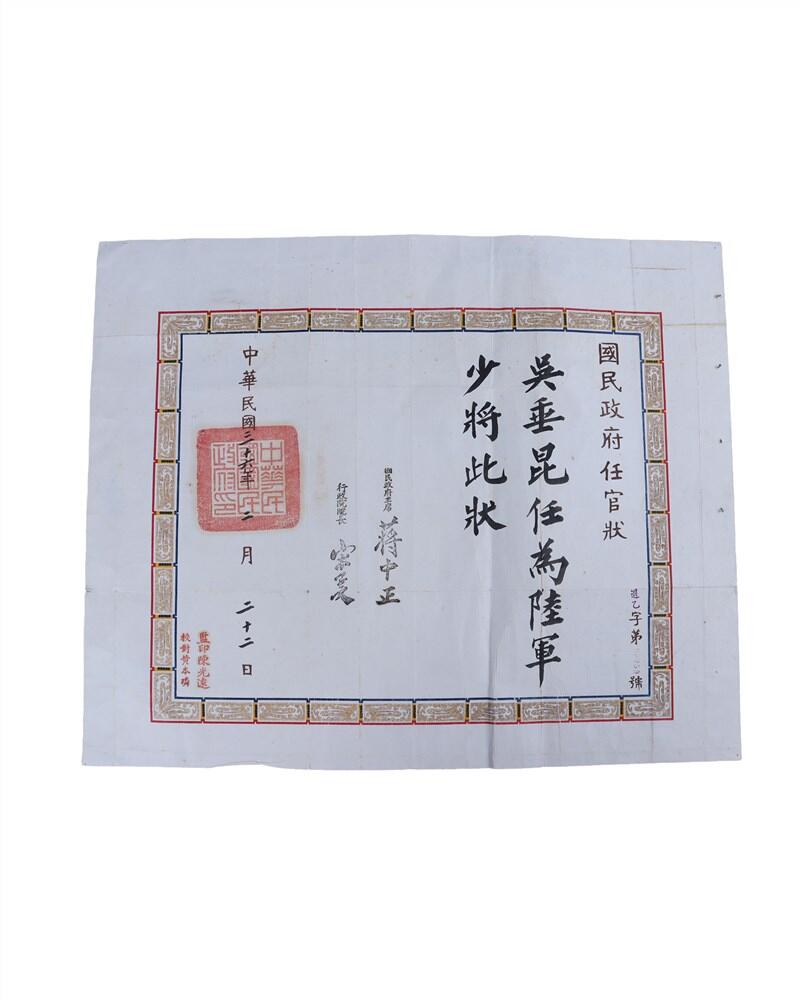 國民政府任官狀
字第
號
吳垂昆任為陸軍
少將此狀
國民政府主席 蔣中正
行政院院長 宋子文
中華民國三十六年二月二十二日
中華民
國國民
政府印
監印陳光遠
校對黃本